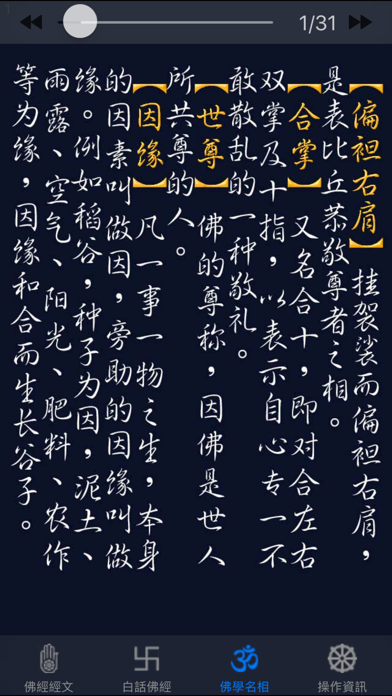 1/31
【偏袒右肩】 挂袈裟而偏袒右肩，
是表比丘恭敬尊者之相。
【合掌】 又名合十，即对合左右
双掌及十指，以表示自心专一不
敢散乱的一种敬礼。
【世尊】 佛的尊称，因佛是世人
所共尊的人。
【因缘】 凡一事一物之生，本身
的因素叫做因，旁助的因缘叫做
缘。例如稻谷，种子为因，泥土、
雨露、空气、阳光、肥料、农作
等为缘，因缘和合而生长谷子。
佛經經文 白話佛經 佛學名相 操作資訊